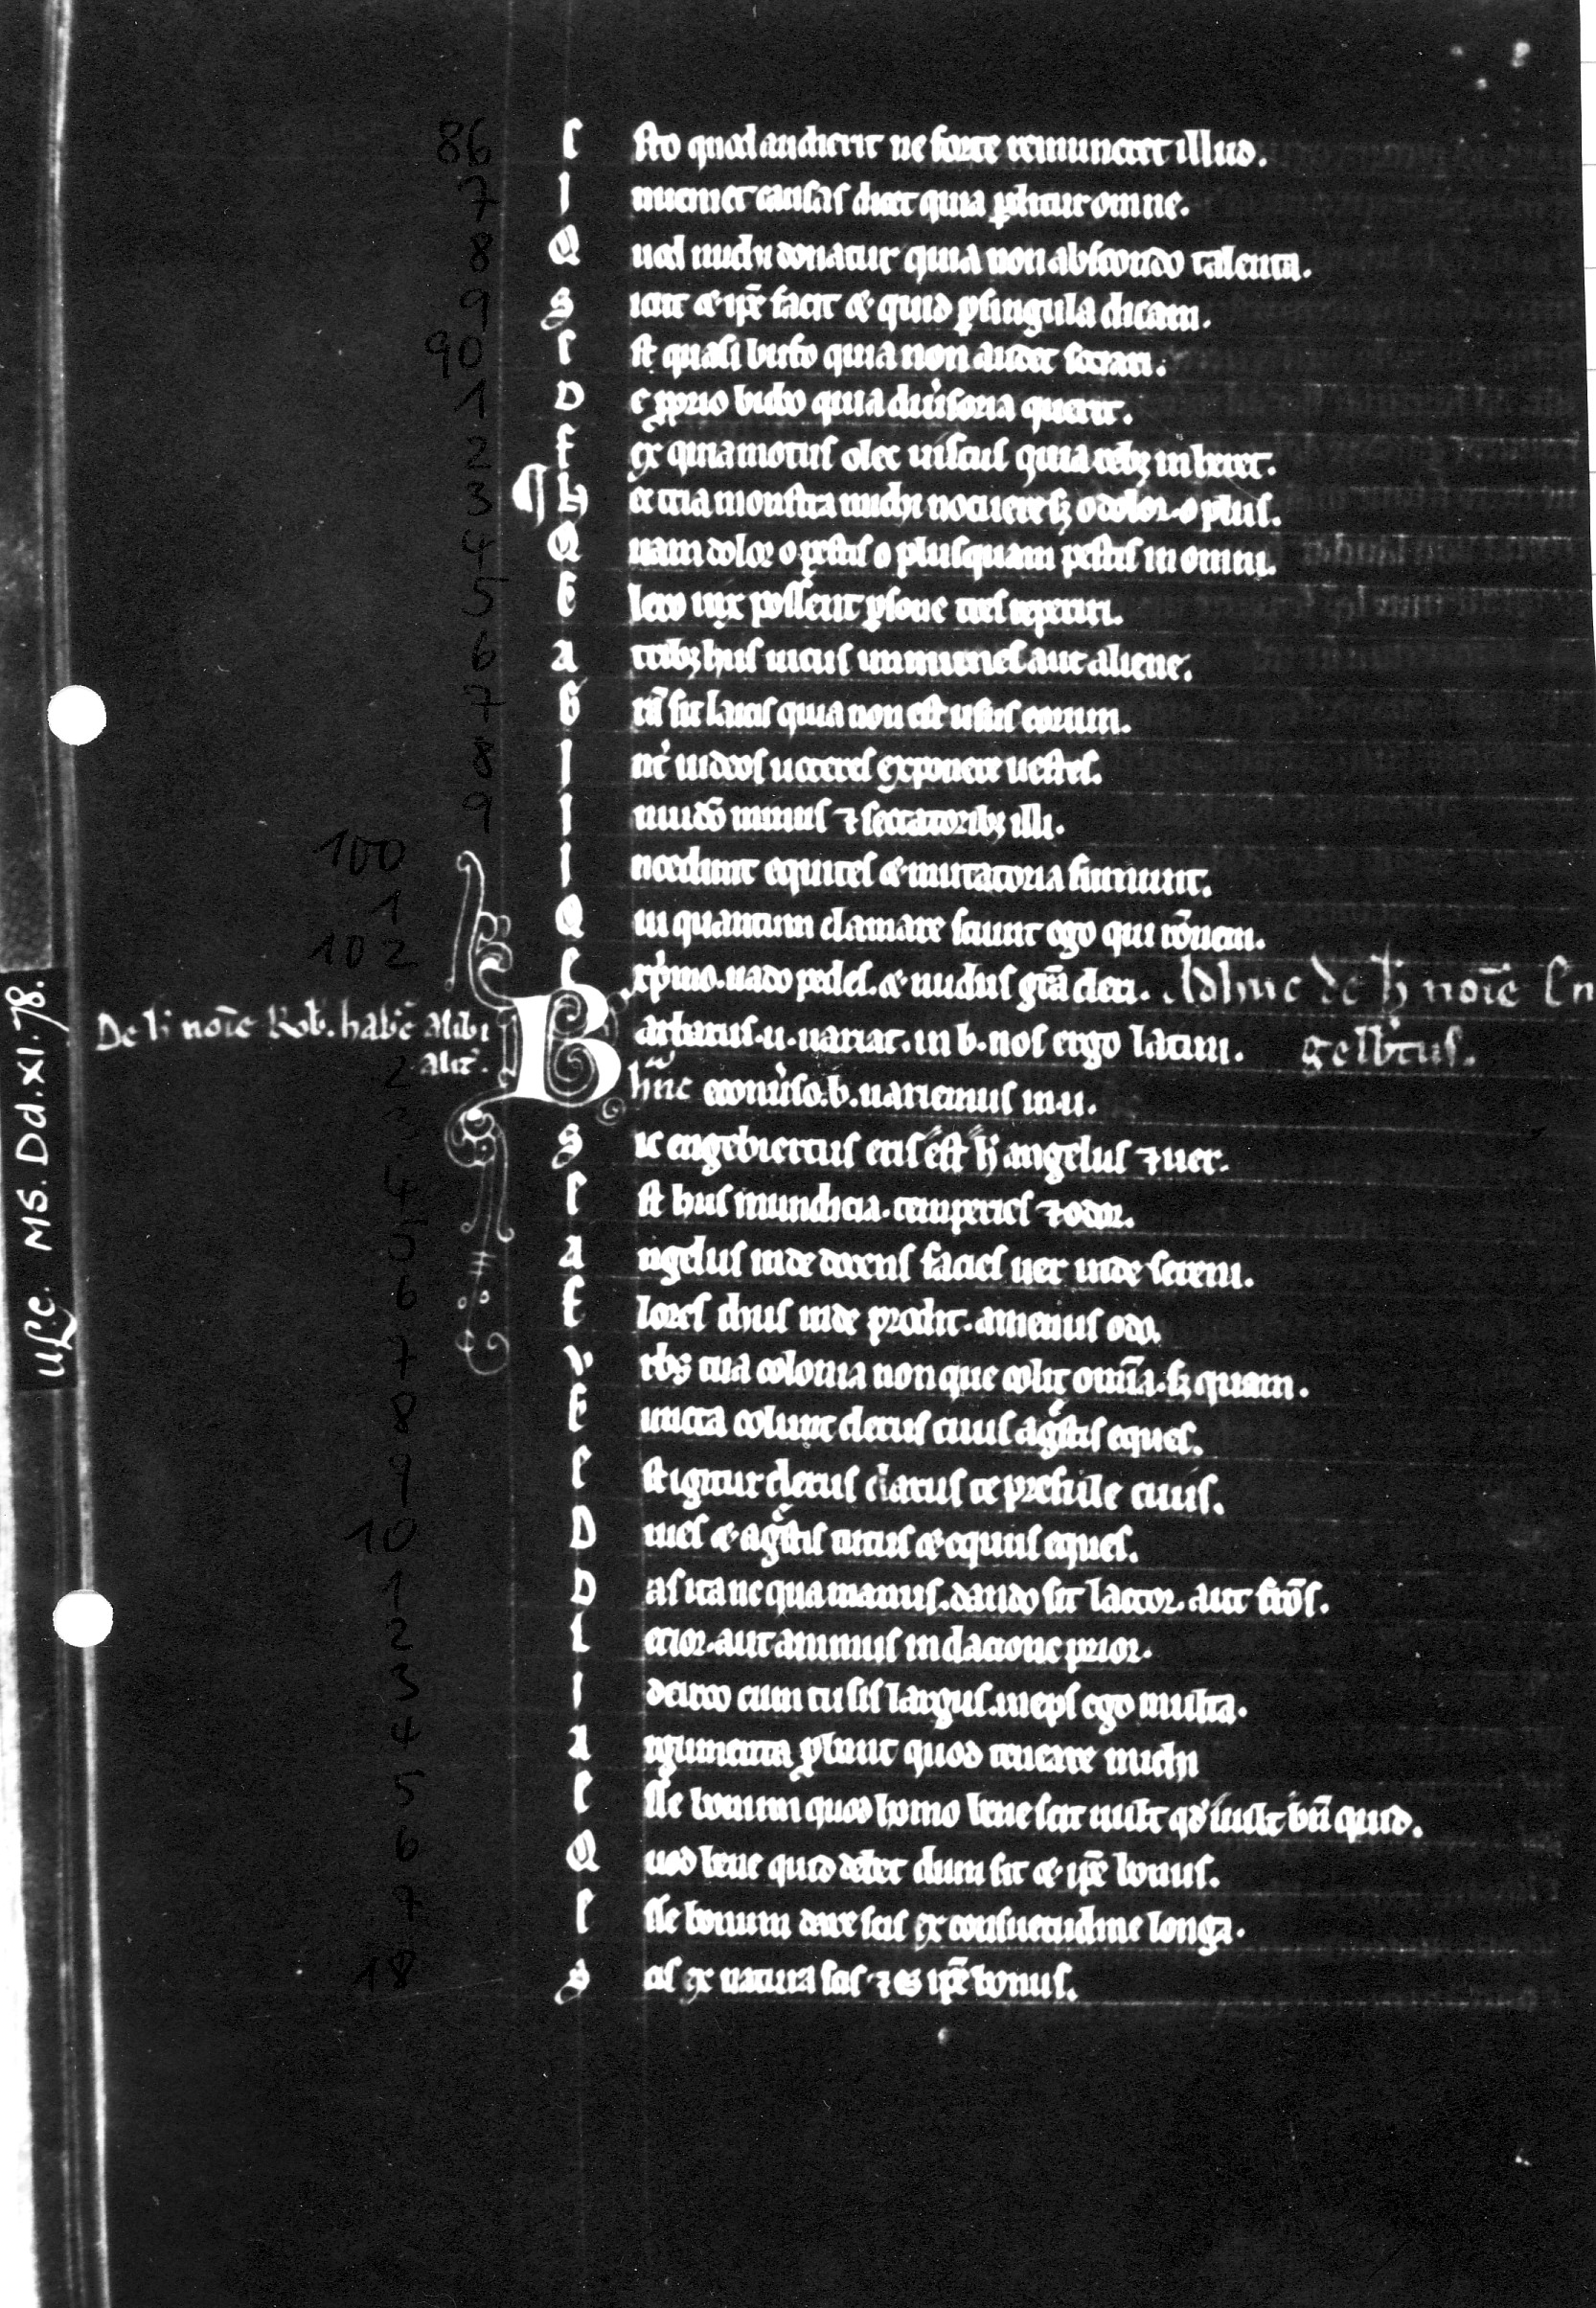 86 E sto quod audierit ne forte remuneret illud.
7 I nueniet causas dicet quia ꝑditur omne.
8 Q uod michi donatur quia non abscondo talenta.
9 S icut & ip̄e facit & quid ꝑ singula dicam.
90 E st quasi bufo quia non audet
1 D e ꝓprio bubo quia diuˀsoria querit.
2 F ex quia motus olet uiscus quia rebꝫ inheret.
3 ¶ H ec tria monstra michi nocuere sꝫ o dolor. o plus.
4 Q uam dolor o pestis o plusquam pestis in omni.
5 C lero uix possent ꝑsone tres reperiri.
6 A tribꝫ hiis uiciis immunes aut aliene.
7 G rā sit laicis quia non est usus eorum.
8 I ntˀ iudeos ueteres exponere uestes.
9 I nuidēt minus ⁊ sectatoribꝫ illi.
100 I ncedunt equites & mutatoria sumunt.
1 Q ui quantum clamare sciunt ego qui rōnem.
102 E xpˀmo. uado pedes. & nudus grā cleri. Adhuc de h̄ noīe En
De h̄ noīe Rob̄. habēt alibi B arbarus .u. uariat. in b. nos ergo latini. gelbˀtus.
alit̄. 2 hinc econuˀso .b. uariemus in .u.
S ic engelbiertus eris est h̄ angelus ⁊ uer.
4 E st huis mundicia. temperies ⁊ odor.
5 A ngelus inde docens facies uer inde sereni.
6 F lores thus inde prodit. amenus odo.
7 V rbs tua colonia non que colit omīa. sꝫ quam.
8 C uncta colunt clerus ciuis agˀstis eques.
9 E st igitur clerus clarus te presule ciuis.
10 D iues & agˀstis tutus & equus eques.
1 D as ita ne qua manus. dando sit laccior. aut frōs.
2 L ecior. aut animus in dacione prior.
3 I dcirco cum tu sis largus. ineps ego multa.
4 A rgumenta ꝓbant quod michi
5 E sse bonum quod homo bene scit uult qd̄ iuste bn̄ quid.
6 Q uod bene quid debet dum sit & ip̄e bonus.
7 E sse bonum dare scis ex consuetudine longa.
18 S cis ex natura scis ⁊ es ip̄e bonus.
ulc. MS. Dd. XI. 78.